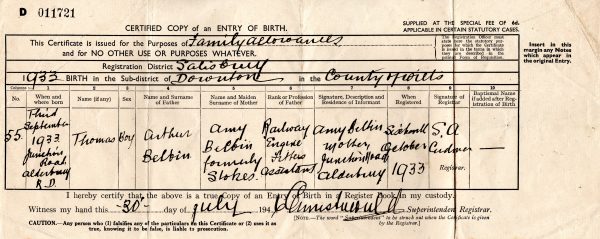 D 011721
CERTIFIED COPY of an ENTRY OF BIRTH.
SUPPLIED AT THE SPECIAL FEE OF 6d.
APPLICABLE IN CERTAIN STATUTORY CASES.
This Certificate is issued for the Purposes of Family allowances
and for NO OTHER USE OR PURPOSES WHATEVER.
The Registration Officer must
here state the statutory purposes for which the Certificate is
issued in the form in which they are described in the
printed Form of Requisition.
Insert in this
margin any Notes
which appear in
the original Entry.
Registration District Salisbury
1933 BIRTH in the Sub-district of Downton in the County of Wilts
Columns :— 1 2 3 4 5 6 7 8 9 10
No.
When and where born
Name (if any)
Sex
Name and Surname of Father
Name and Maiden Surname of Mother
Rank or Profession of Father
Signature, Description and Residence of Informant
When Registered
Signature of Registrar
Baptismal Name if added after Registration of Birth
55.
Third September 1933 Junction Road Alderbury R.D.
Thomas
Boy
Arthur Belbin
Amy Belbin formerly Stokes
Railway Engine Fitters Assistant
Amy Belbin Mother Junction Road Alderbury
Sixteenth October 1933
S. A.
Registrar.
—
I hereby certify that the above is a true Copy of an Entry of Birth in a Register Book in my custody.
Witness my hand this -30- day of July 194
Superintendent Registrar.
CAUTION.—Any person who (1) falsifies any of the particulars on this Certificate or (2) uses it as
true, knowing it to be false, is liable to prosecution.
[NOTE.—The word "Superintendent" to be struck out when the Certificate is given
by the Registrar.]